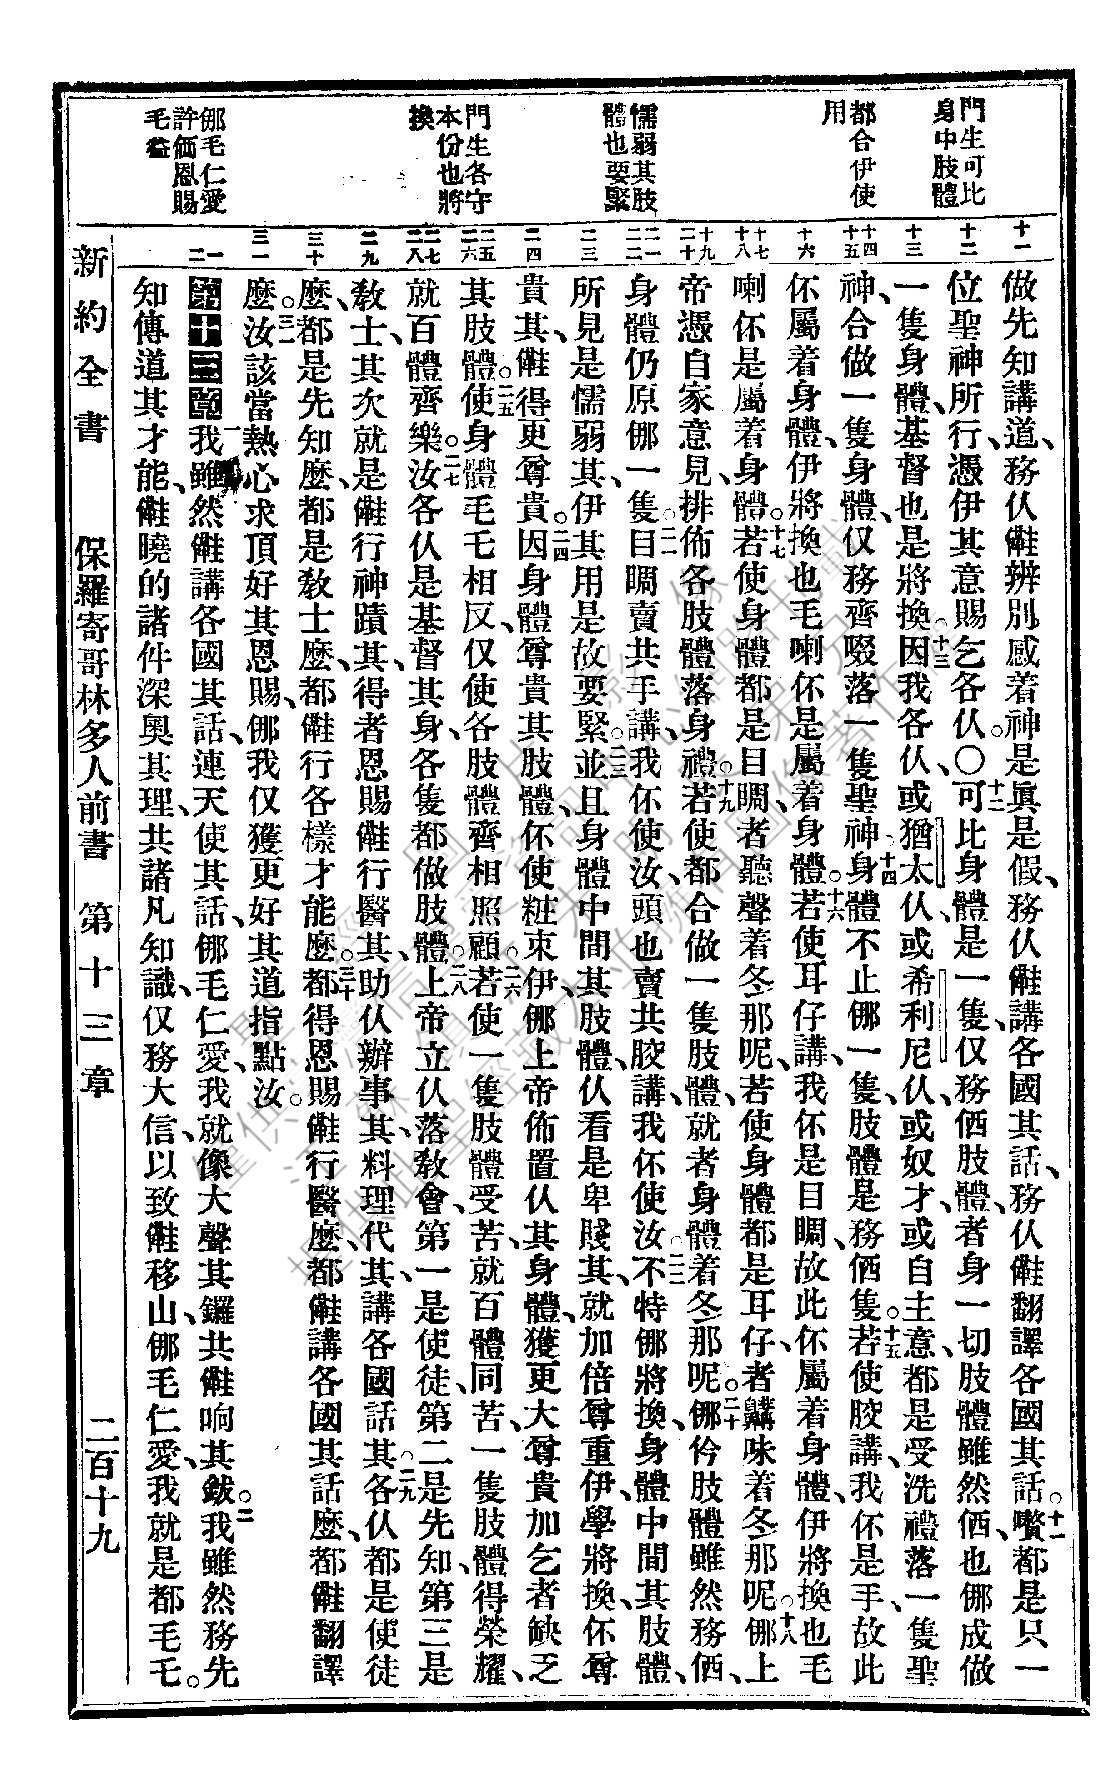 門生可比
身中肢體
都合伊使
用
懦弱其肢
體也要緊
門生各守
本份也將
換
㑚毛仁愛
許価恩賜
毛益
十一
十二
十三
十四
十五
十六
十七
十八
十九
二十
二一
二二
二三
二四
二五
二六
二七
二八
二九
三十
三一
一
二
做先知講道、務仈㑺辨別感着神是眞是假、務仈㑺講各國其話、務仈㑺翻譯各國其話。十一㘔都是只一
位聖神所行、憑伊其意賜乞各仈。○十二可比身體是一隻、仅務価肢體、者身一切肢體雖然価、也㑚成做
一隻身體、基督也是將換。十三因我各仈、或猶太仈、或希利尼仈、或奴才、或自主意、都是受洗禮落一隻聖
神、合做一隻身體、仅務齊啜落一隻聖神。十四身體不止㑚一隻肢體、是務価隻。十五若使胶講、我伓是手、故此
伓屬着身體、伊將換也毛喇伓是屬着身體。十六若使耳仔講、我伓是目睭、故此伓屬着身體、伊將換也毛
喇伓是屬着身體。十七若使身體都是目睭、者聽聲着冬那呢、若使身體都是耳仔、者齅味着冬那呢。十八㑚上
帝憑自家意見、排佈各肢體落身禮。十九若使都合做一隻肢體、就者身體着冬那呢。二十㑚仱肢體雖然務価、
身體仍原㑚一隻。二一目睭賣共手講、我伓使汝、頭也賣共胶講、我伓使汝。二二不特㑚將換、身體中間其肢體、
所見是懦弱其、伊其用是故要緊。二三並且身體中間其肢體、仈看是卑賤其、就加倍尊重伊、學將換、伓尊
貴其、㑺得更尊貴。二四因身體尊貴其肢體、伓使粧束伊、㑚上帝佈置仈其身體、獲更大尊貴加乞者缺乏
其肢體。二五使身體毛毛相反、仅使各肢體齊相照顧。二六若使一隻肢體受苦、就百體同苦、一隻肢體得榮耀、
就百體齊樂。二七汝各仈是基督其身、各隻都做肢體。二八上帝立仈落敎會、第一是使徒、第二是先知、第三是
敎士、其次就是㑺行神蹟其、得者恩賜㑺行醫其、助仈辦事其、料理代其、講各國話其。二九各仈都是使徒
麽、都是先知麽、都是敎士麽、都㑺行各樣才能麽。三十都得恩賜㑺行醫麽、都㑺講各國其話麽、都㑺翻譯
麽。三一汝該當熱心求頂好其恩賜、㑚我仅獲更好其道指點汝。
第十三章一我雖然㑺講各國其話、連天使其話、㑚毛仁愛、我就像大聲其鑼、共㑺响其鈸。二我雖然務先
知傳道其才能、㑺曉的諸件深奥其理、共諸凡知識、仅務大信、以致㑺移山、㑚毛仁愛、我就是都毛乇。
新約全書　保羅寄哥林多人前書　第十三章　二百十九